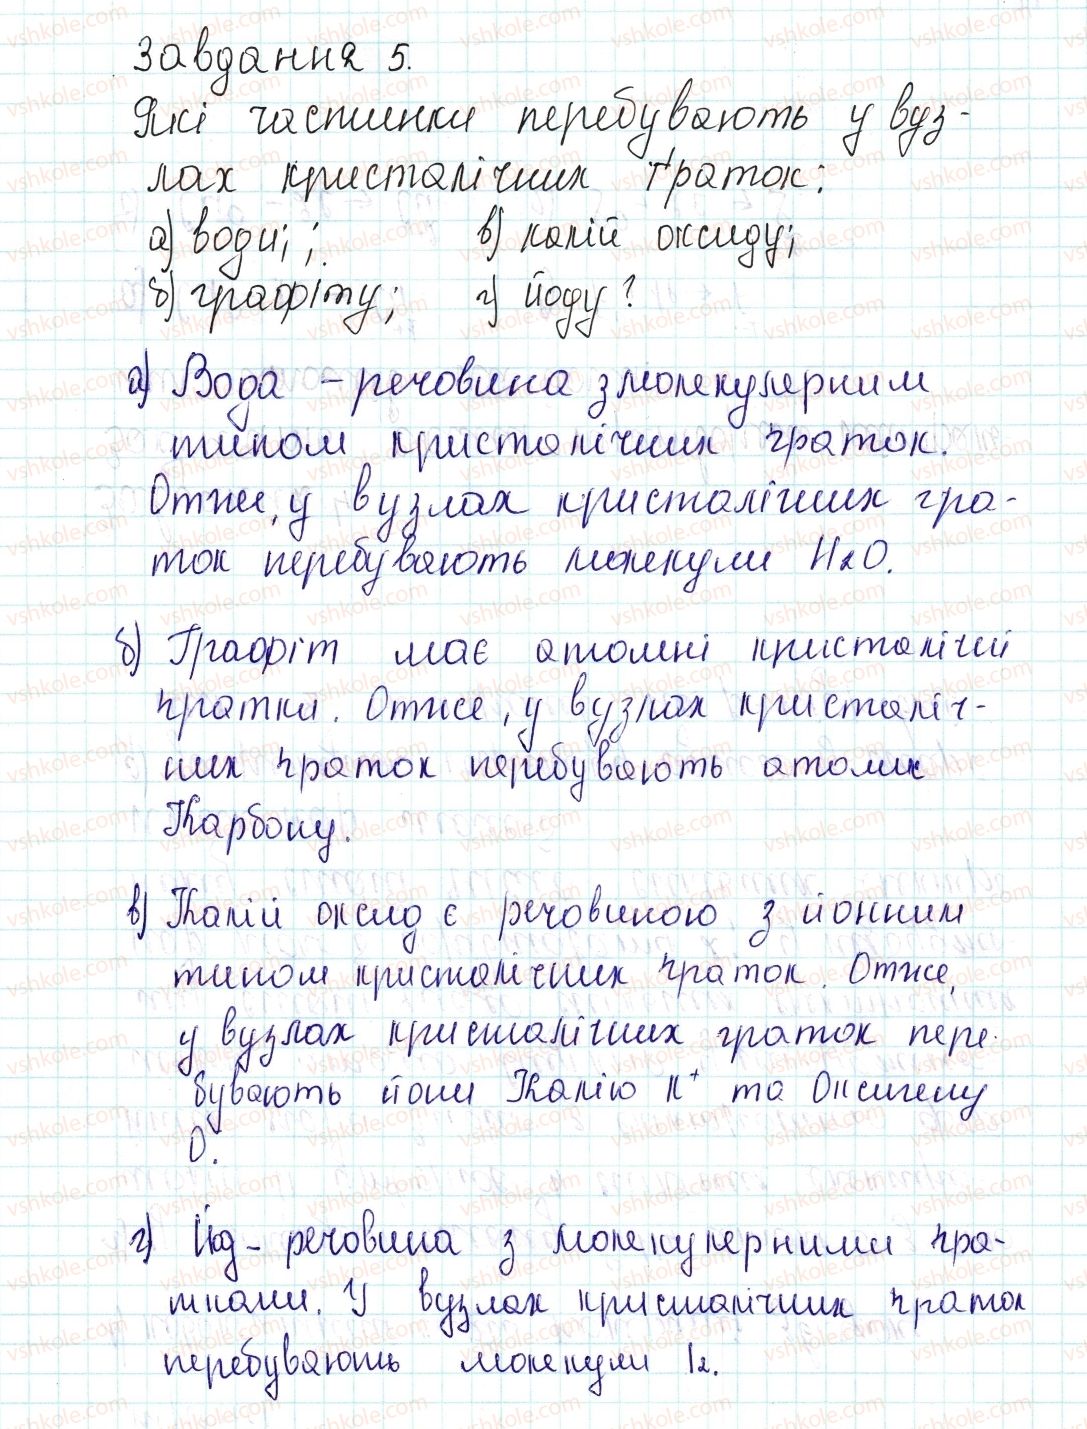 Завдання 5.
Які частинки перебувають у вуз-
лах кристалічних ґраток:
а) води; ; в) калій оксиду;
б) графіту; г) йоду?
а) Вода – речовина з молекулярним
типом кристалічних ґраток.
Отже, у вузлах кристалічних гра-
ток перебувають молекули H2O.
б) Графіт має атомні кристалічні
ґратки. Отже, у вузлах кристаліч-
них ґраток перебувають атоми
Карбону.
в) Калій оксид є речовиною з йонним
типом кристалічних ґраток. Отже,
у вузлах кристалічних ґраток пере-
бувають йони Калію K⁺ та Оксигену
O.
г) Йод – речовина з молекулярними ґра-
тками. У вузлах кристалічних ґраток
перебувають молекули I2.